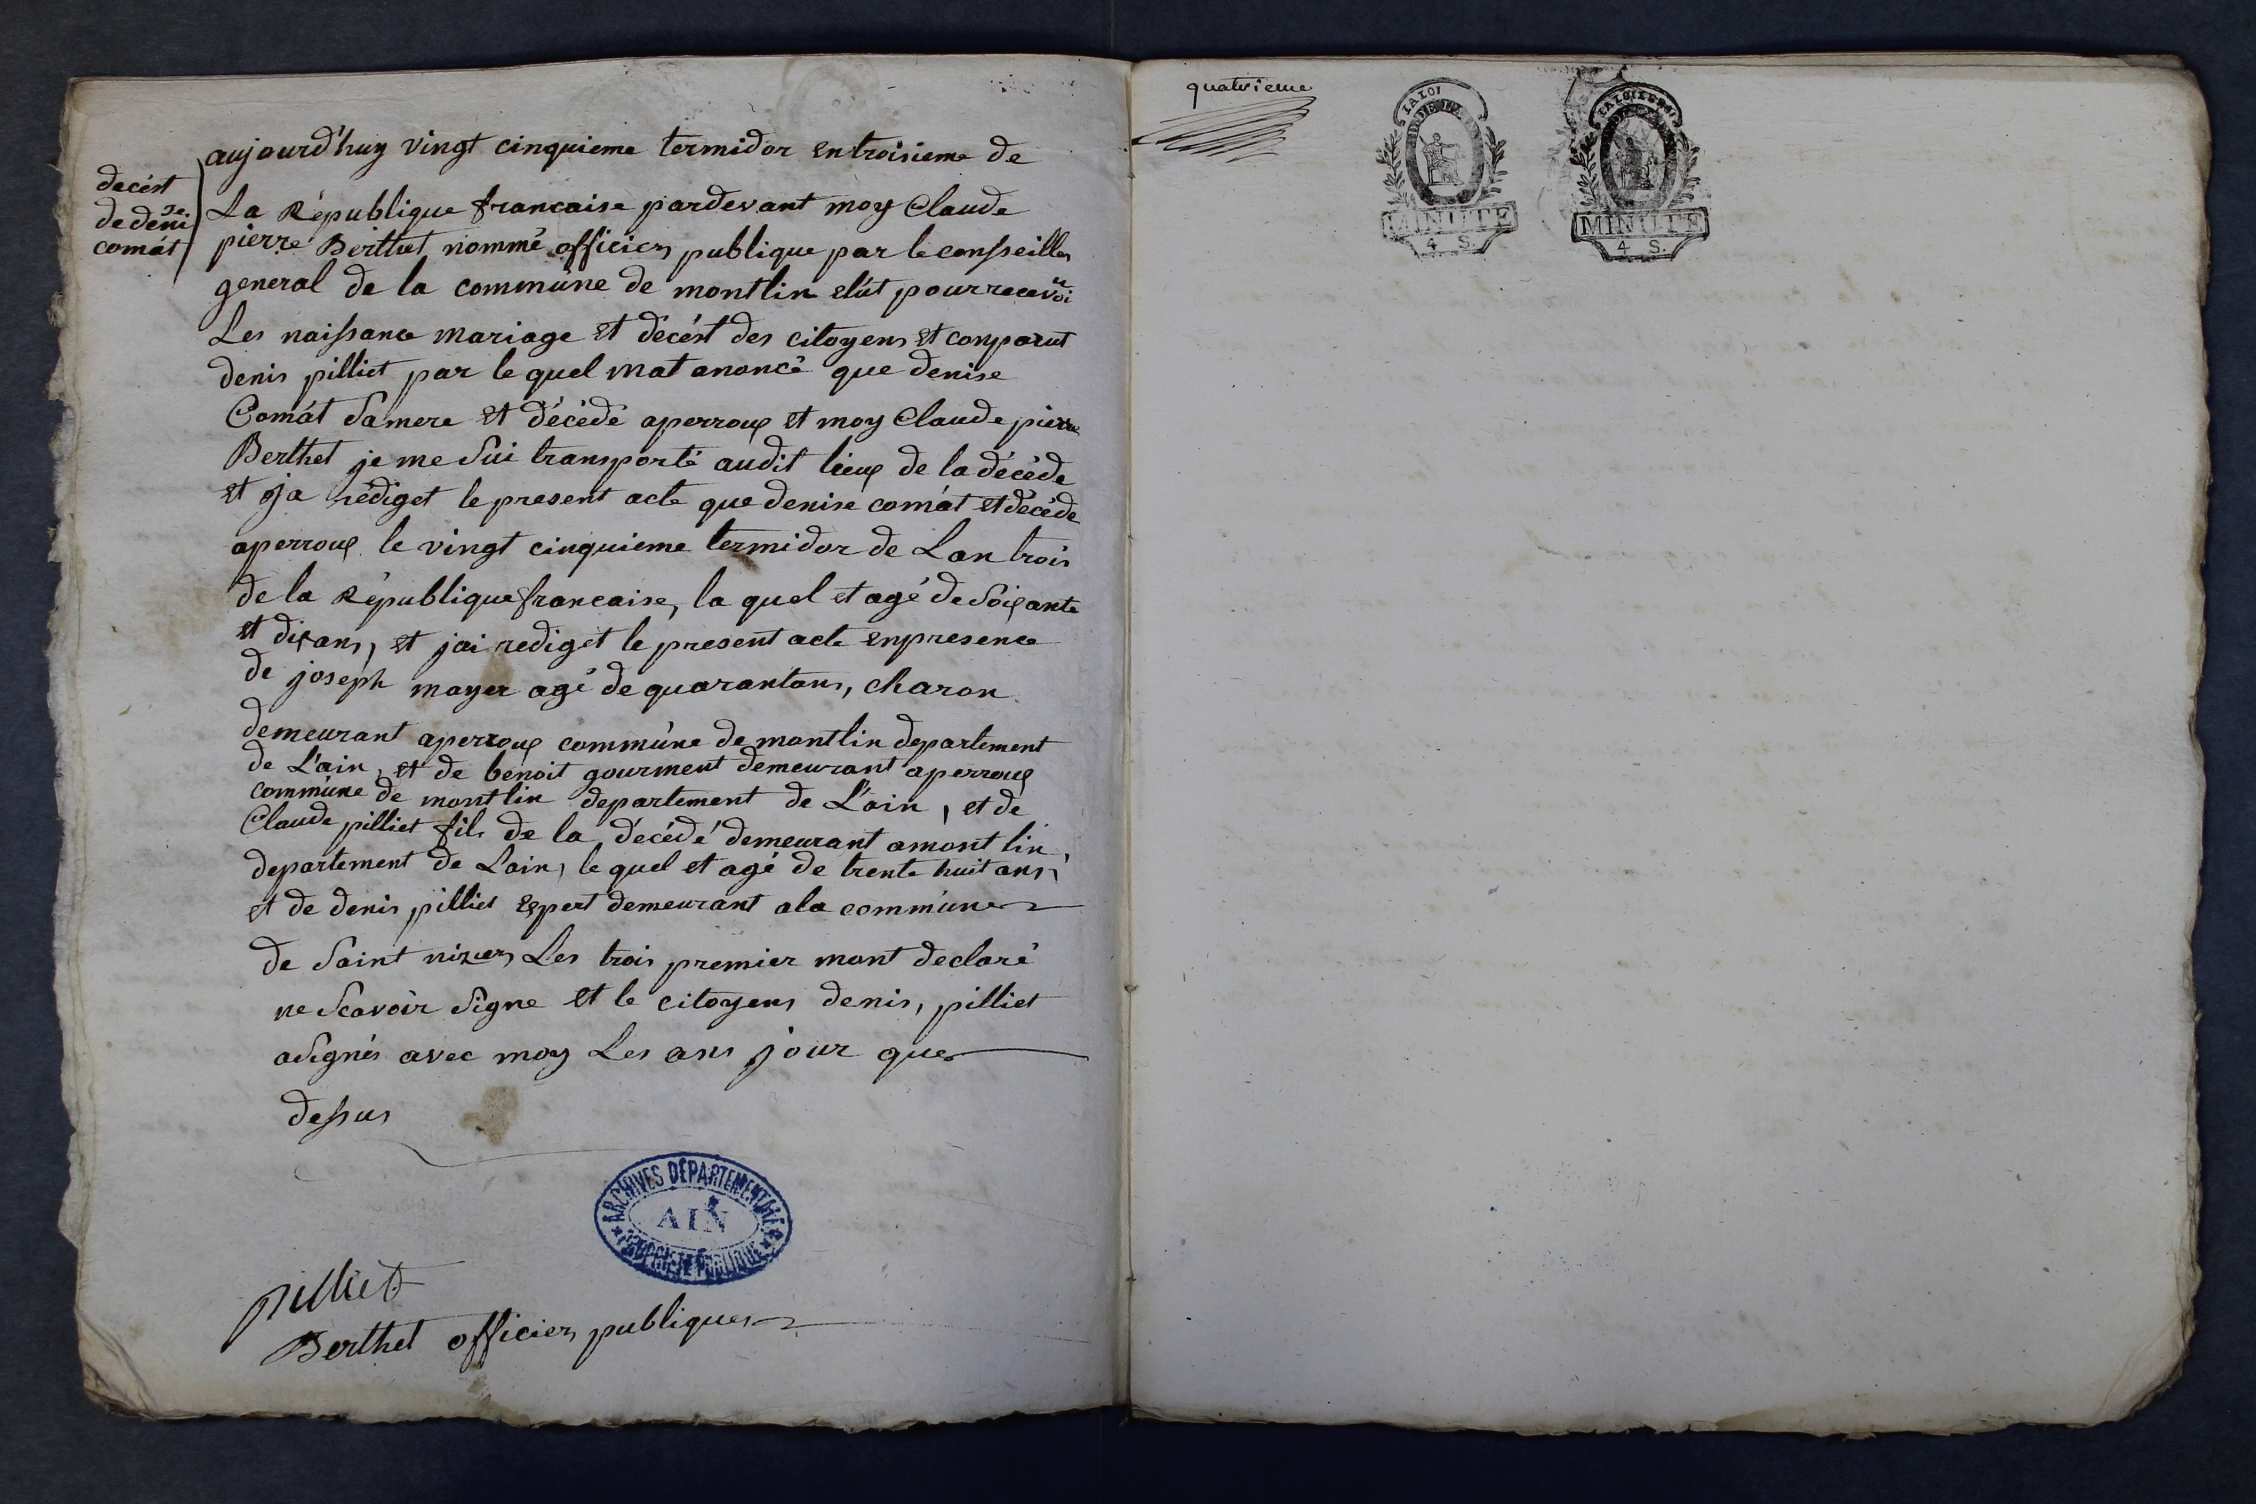 decést
de denise
comát
aujourd'huy vingt cinquieme termidor en troisieme de
La République francaise pardevant moy Claude
pierre Berthet nommé officier publique par le consseille
general de la commúne de montlin elút pour recevoir
Les naissance mariage et décést des citoyens et conparut
denis pilliet par le quel mat anoncé que denise
Comát Samere et décédé aperroux et moy Claude pierre
Berthet je me Sui transporté audit lieux de la décédé
et ja rédiget le present acte que denise comát et décédé
aperroux le vingt cinquieme termidor de Lan trois
de la République francaise, la quel et agé de Soixante
et dix ans, et jai rediget le present acte enpresence
de joseph mayer agé de quarantans, charon
demeurant aperroux commúne de montlin departement
de L'ain, et de benoit gourment demeurant aperroux
commúne de montlin departement de L'ain, et de
Claude pilliet fils de la décédé demeurant amontlin,
departement de Lain, le quel et agé de trente huit ans,
et de denis pilliet expert demeurant ala commúne
de Saint nizier Les trois premier mont declaré
ne Scavoir Signe et le citoyens denis, pilliet
aSignés avec moy Les ans jour que
dessus
ARCHIVES DÉPARTEMENTALES
AIN
PROPRIÉTÉ PUBLIQUE
pilliet
Berthet officier publique
quatrieme
LA LOI
MINUTE
4 S.
LA LOI
MINUTE
4 S.